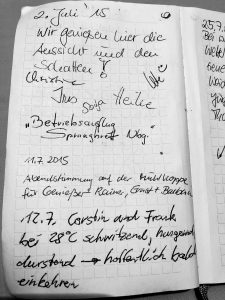 2. Juli '15
Wir genießen hier die
Aussicht und den
Schatten!
Christine Ute
Ines Sonja Heike
"Betriebsausflug
Sprungbrett Nbg."
11.7.2015
Abendstimmung auf der
für Genießer Rainer, Ernst + Barbara
12.7. Carstin und Frank
bei 28°C schwitzend, hungernd
durstend → hoffentlich bald
einkehren
25.7.
Bei